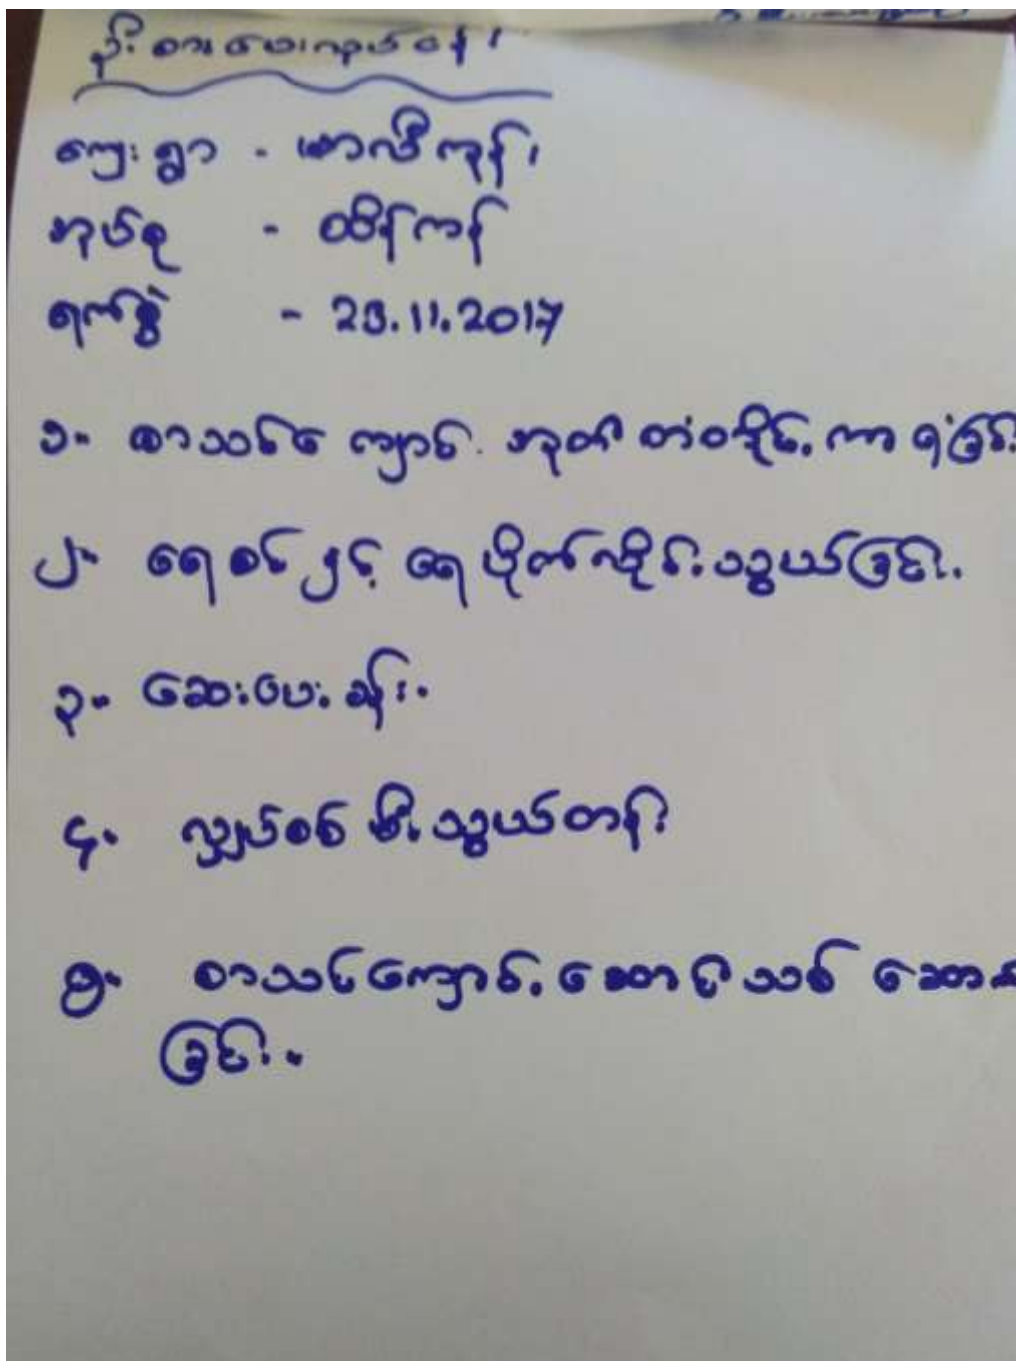 ဦးစားပေးလုပ်ငန်း
ကျေးရွာ - ကုန်း
အုပ်စု - ထိန်ကန်
ရက်စွဲ - 23.11.2017
၁။ စာသင်ကျောင်း အုတ်တံတိုင်း ကာရံခြင်း
၂။ ရေစင်နှင့် ရေပိုက်လိုင်းသွယ်ခြင်း။
၃။ ဆေးပေးခန်း။
၄။ လျှပ်စစ်မီးသွယ်တန်း
၅။ စာသင်ကျောင်းဆောင်သစ်
ခြင်း။